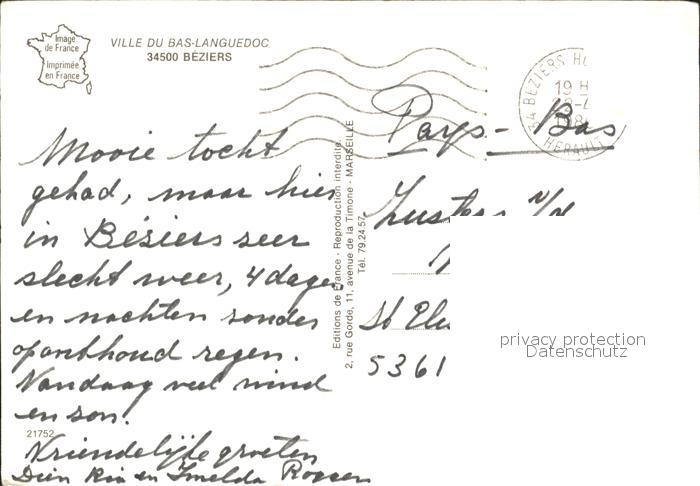 Image
de France
Imprimée
en France
VILLE DU BAS-LANGUEDOC
34500 BÉZIERS
34 BEZIERS
19 H
HERAULT
Pays-Bas
Mooie tocht
gehad, maar hier
in Béziers zeer
slecht weer, 4 dagen
en nachten zonder
oponthoud regen.
Vandaag veel wind
en zon!
21752
Vriendelijke groeten
Dien Ria en Imelda
Editions de France - Reproduction interdite
2, rue Gorde, 11, avenue de la Timone - MARSEILLE
Tél. 79.24.57
Zusters v/d
St
5361
privacy protection
Datenschutz